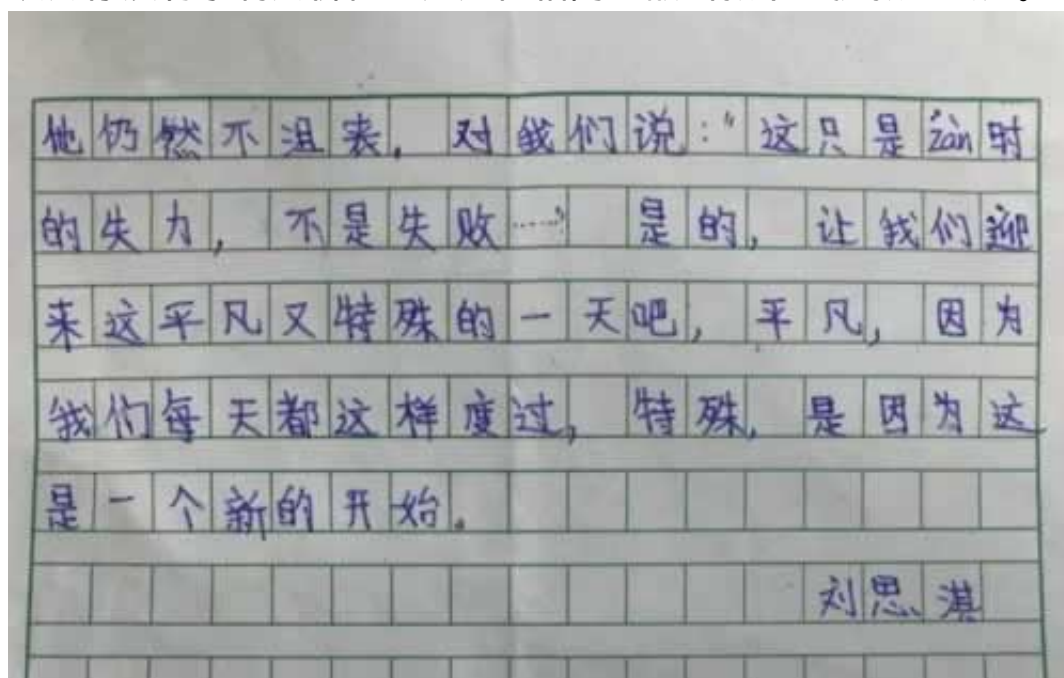 他仍然不沮丧，对我们说：“这只是zàn时
的失力，不是失败……” 是的，让我们迎
来这平凡又特殊的一天吧，平凡，因为
我们每天都这样度过，特殊，是因为这
是一个新的开始。
刘思淇